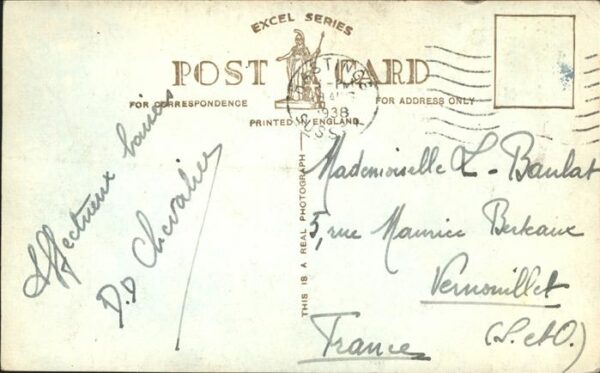 EXCEL SERIES
POST CARD
FOR CORRESPONDENCE
FOR ADDRESS ONLY
PRINTED IN ENGLAND
1938
THIS IS A REAL PHOTOGRAPH
Affectueux baisers
D.D Chevalier
Mademoiselle L. Baulat
5, rue Maurice Berteaux
Vernouillet
(S. et O.)
France